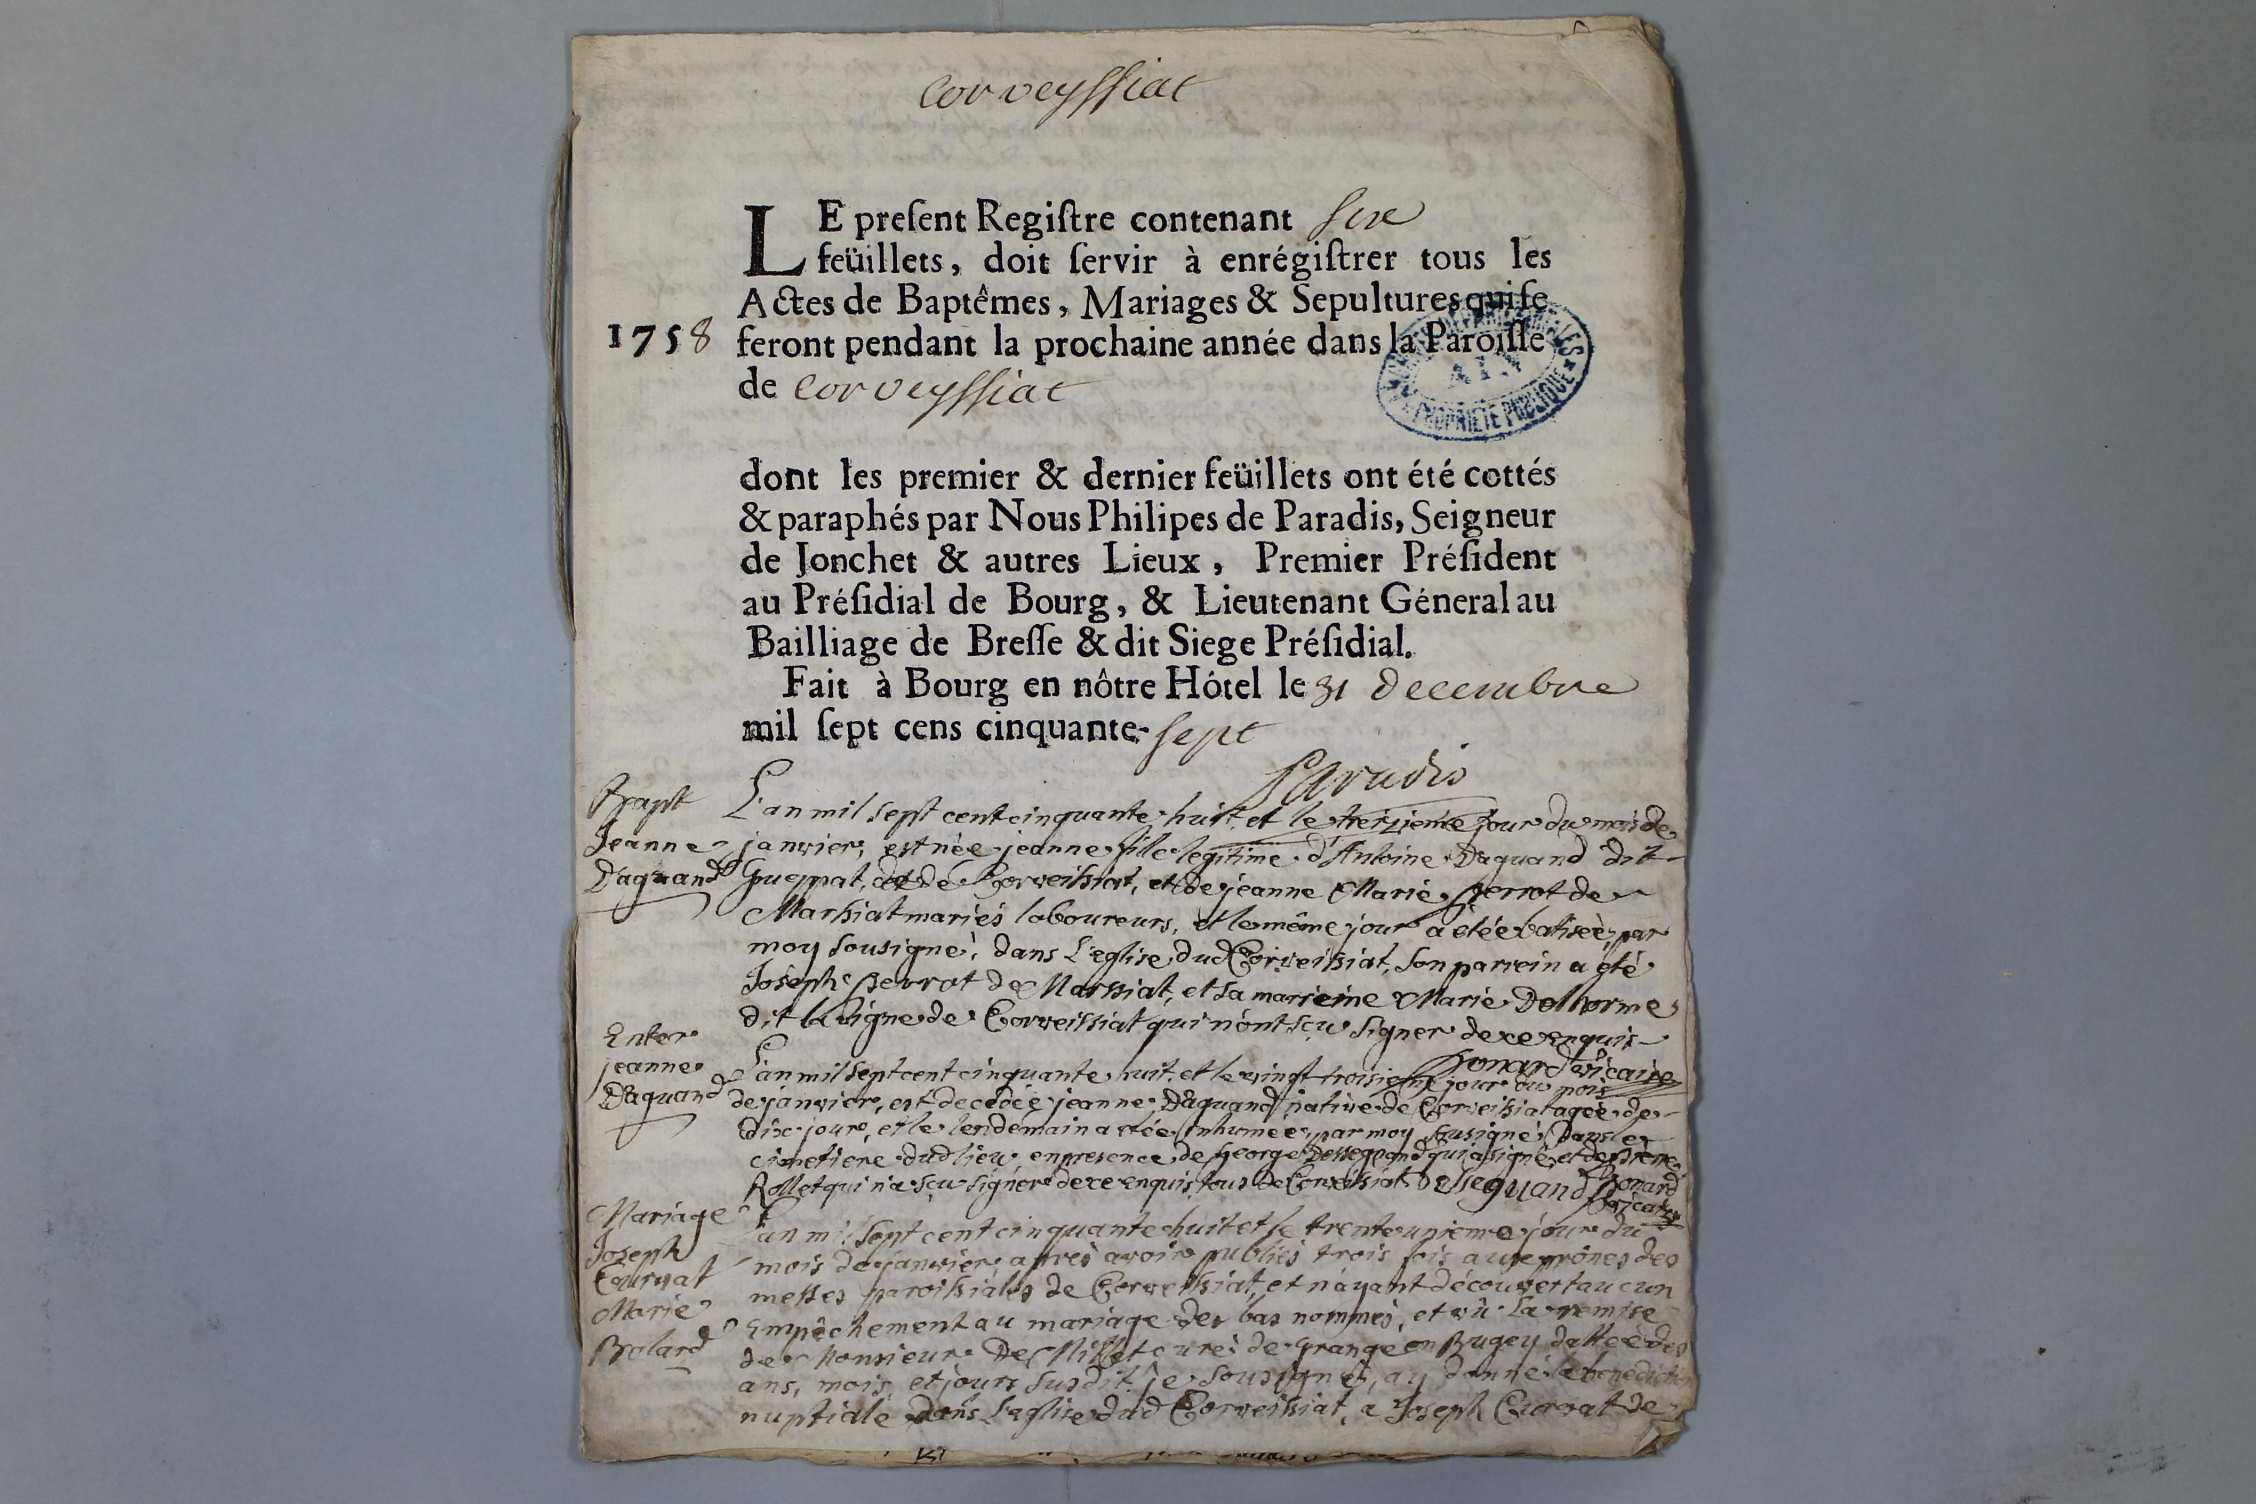 Corveyssiac
LE preſent Regiſtre contenant six
feüillets, doit ſervir à enrégiſtrer tous les
Actes de Baptêmes, Mariages & Sepultures qui ſe
1758 feront pendant la prochaine année dans la Paroiſſe
de Corveyssiac
PROPRIETE PUBLIQUE
AIN
dont les premier & dernier feüillets ont été cottés
& paraphés par Nous Philipes de Paradis, Seigneur
de Jonchet & autres Lieux, Premier Préſident
au Préſidial de Bourg, & Lieutenant Géneral au
Bailliage de Breſſe & dit Siege Préſidial.
Fait à Bourg en nôtre Hôtel le 31 decembre
mil ſept cens cinquante-sept
Paradis
Bapt
Jeanne
Daguand
L'an mil sept cent cinquante huit, et le treizième jour du mois de
janvier, est nèe jeanne fille legitime d'Antoine Daguand dit
Gueppat, de Corveissiat, et de jeanne Marie perrot de
Marssiat mariés laboureurs, et le même jour a étée batiseè, par
moy sousigné, dans L'eglise dud Corveissiat, son parrein a été
Joseph perrot de Marssiat, et sa marreine Marie Delhorme
dit la vigne de Corveissiat qui n'ont sçu signer de ce enquis
vicaire
Enter
jeanne
Daguand
L'an mil sept cent cinquante huit, et le vingt troisième jour du mois
de janvier, est decedeé jeanne Daguand native de Corveissiat ageè de
dix jours, et le lendemain a étée inhumeé, par moy sousigné, Dans le
cimetiere dud lieu, en presence de George Desseguand qui a signé, et de
Rollet qui n'a sçu signer de ce enquis tous de Corveissiat. Desseguand
vicaire
Mariage
Joseph
Curvat
Marie
Bolard
L'an mil sept cent cinquante huit et le trente unieme jour du
mois de janvier, aprés avoir publiés trois fois aux prônes des
messes paroissiales de Corveissiat, et n'ayant découvert aucun
Empêchement au mariage des bas nommés, et vû la remise
de Monsieur De Millet curé de grange en Bugey datteè des
ans, mois, et jours susdit, je sousigné, ay donné la benediction
nuptiale dans L'eglise dud Corveissiat, a Joseph Curvat de